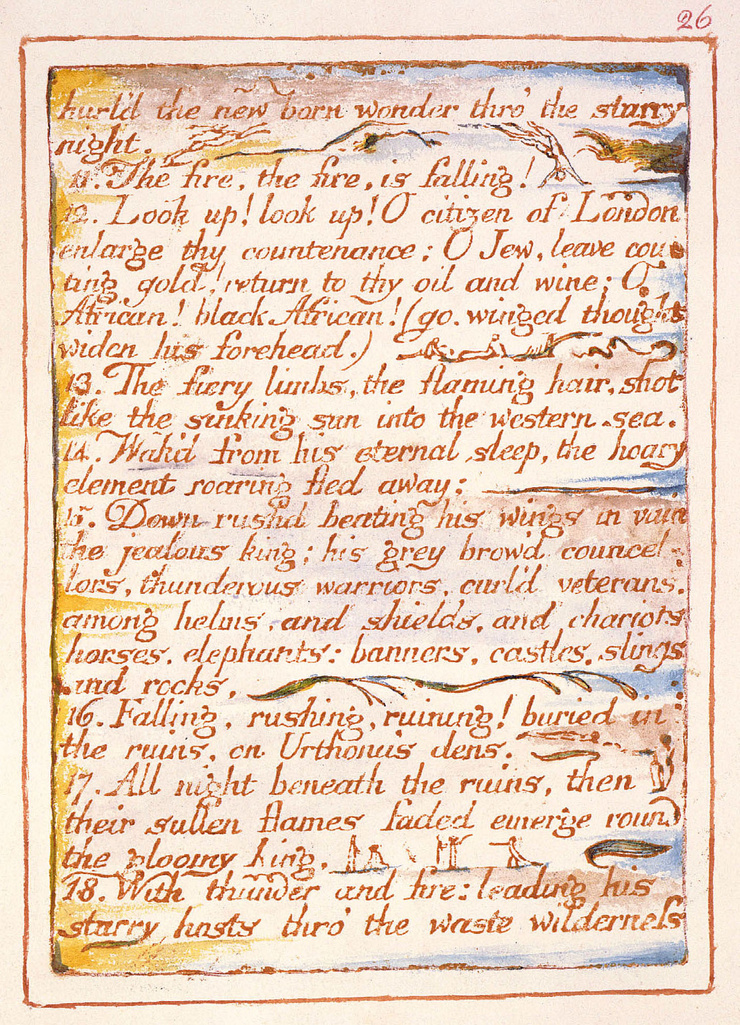 26
hurl'd the new born wonder thro' the starry
night.
11. The fire, the fire, is falling!
12. Look up! look up! O citizen of London
enlarge thy countenance; O Jew, leave coun
ting gold! return to thy oil and wine; O
African! black African! (go. winged thought
widen his forehead.)
13. The fiery limbs, the flaming hair, shot
like the sinking sun into the western sea.
14. Wak'd from his eternal sleep, the hoary
element roaring fled away:
15. Down rush'd beating his wings in vain
the jealous king; his grey brow'd councel-
lors, thunderous warriors, curl'd veterans,
among helms, and shields, and chariots
horses, elephants: banners, castles, slings
and rocks,
16. Falling, rushing, ruining! buried in
the ruins, on Urthona's dens.
17. All night beneath the ruins, then
their sullen flames faded emerge round
the gloomy king,
18. With thunder and fire: leading his
starry hosts thro' the waste wilderneſs